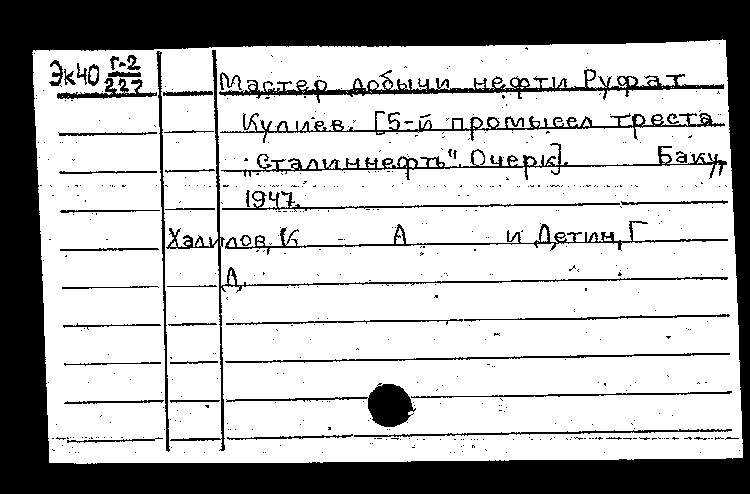 Эк40 Г-2/227 Мастер добычи нефти Руфат
Кулиев. [5-й промысел треста
„Сталиннефть". Очерк]. Баку,
1947.
Халилов, К А и Детин, Г
Д.